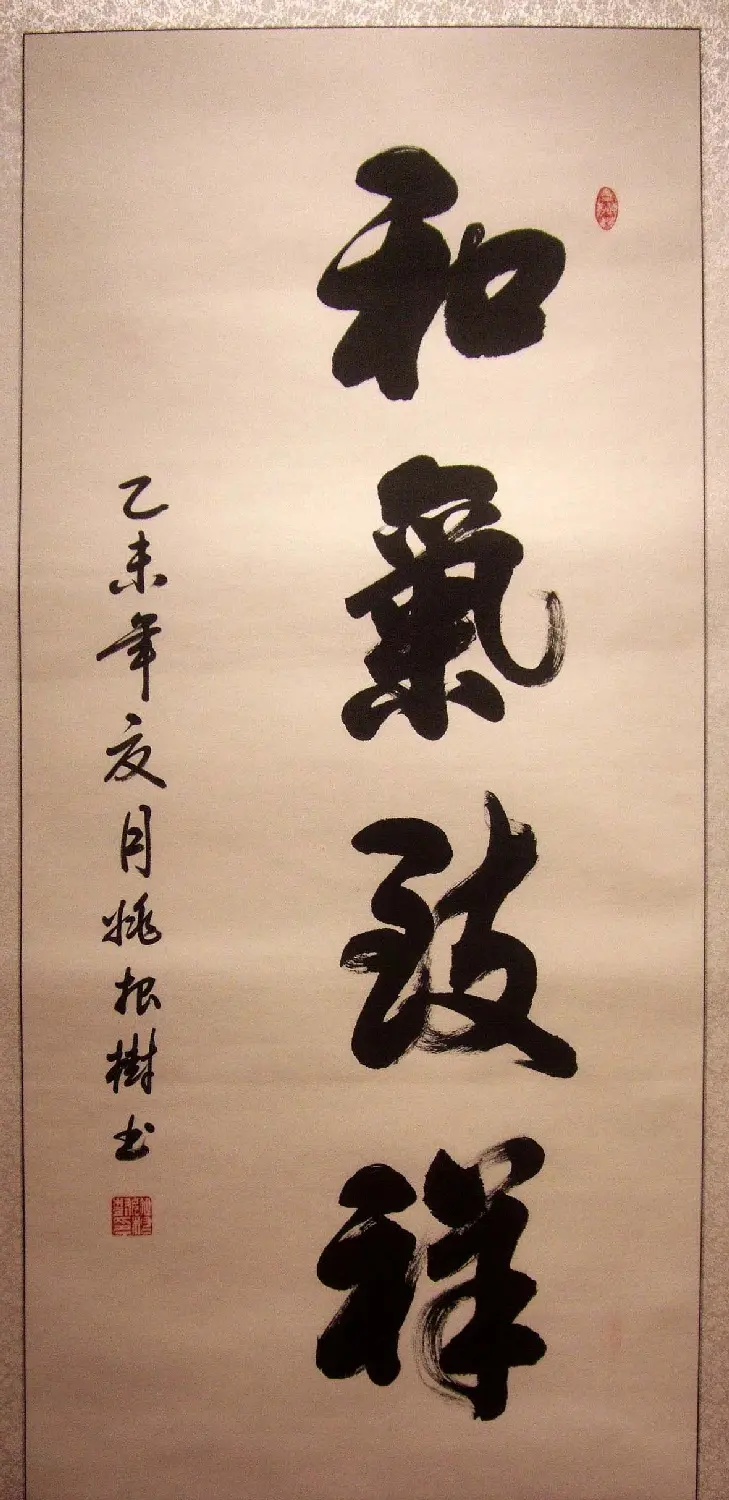 和氣致祥
乙未年夏月姚根樹书